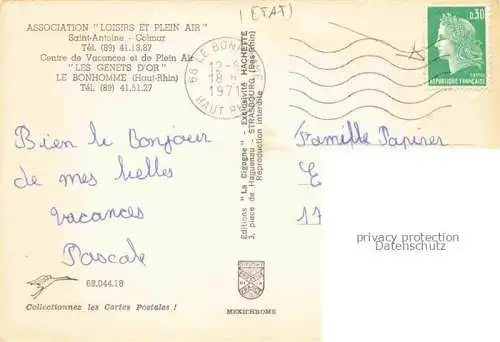 ASSOCIATION "LOISIRS ET PLEIN AIR"
Saint-Antoine - Colmar
Tél. (89) 41.13.87
Centre de Vacances et de Plein Air
"LES GENETS D'OR"
LE BONHOMME (Haut-Rhin)
Tél. (89) 41.51.27
(ETAT)
68 LE BONHOMME
12-8
18 H
1971
HAUT RHIN
0,30
REPUBLIQUE FRANÇAISE
POSTES
Bien le Bonjour
de mes belles
vacances
Pascale
Editions "La Cigogne" - Exclusivité HACHETTE
3, place de Haguenau - STRASBOURG (Bas-Rhin)
Reproduction interdite
Famille Papirer
E
17
privacy protection
Datenschutz
68.044.18
Collectionnez les Cartes Postales !
MEXICHROME